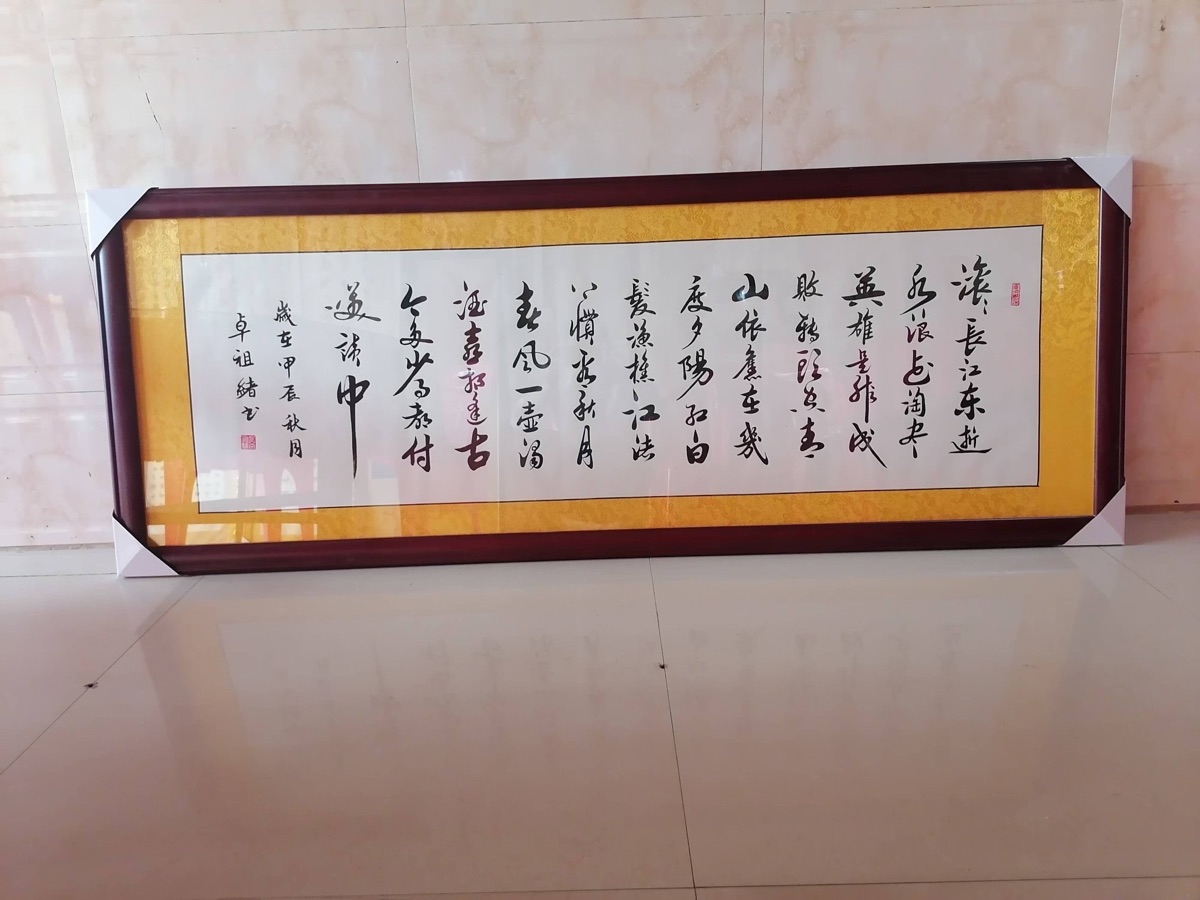 滚滚長江东逝
水浪花淘尽
英雄是非成
敗轉頭空青
山依舊在幾
度夕陽红白
髮漁樵江渚
上慣看秋月
春风一壶濁
酒喜相逢古
今多少事都付
笑談中
歲在甲辰秋月
卓祖緒书